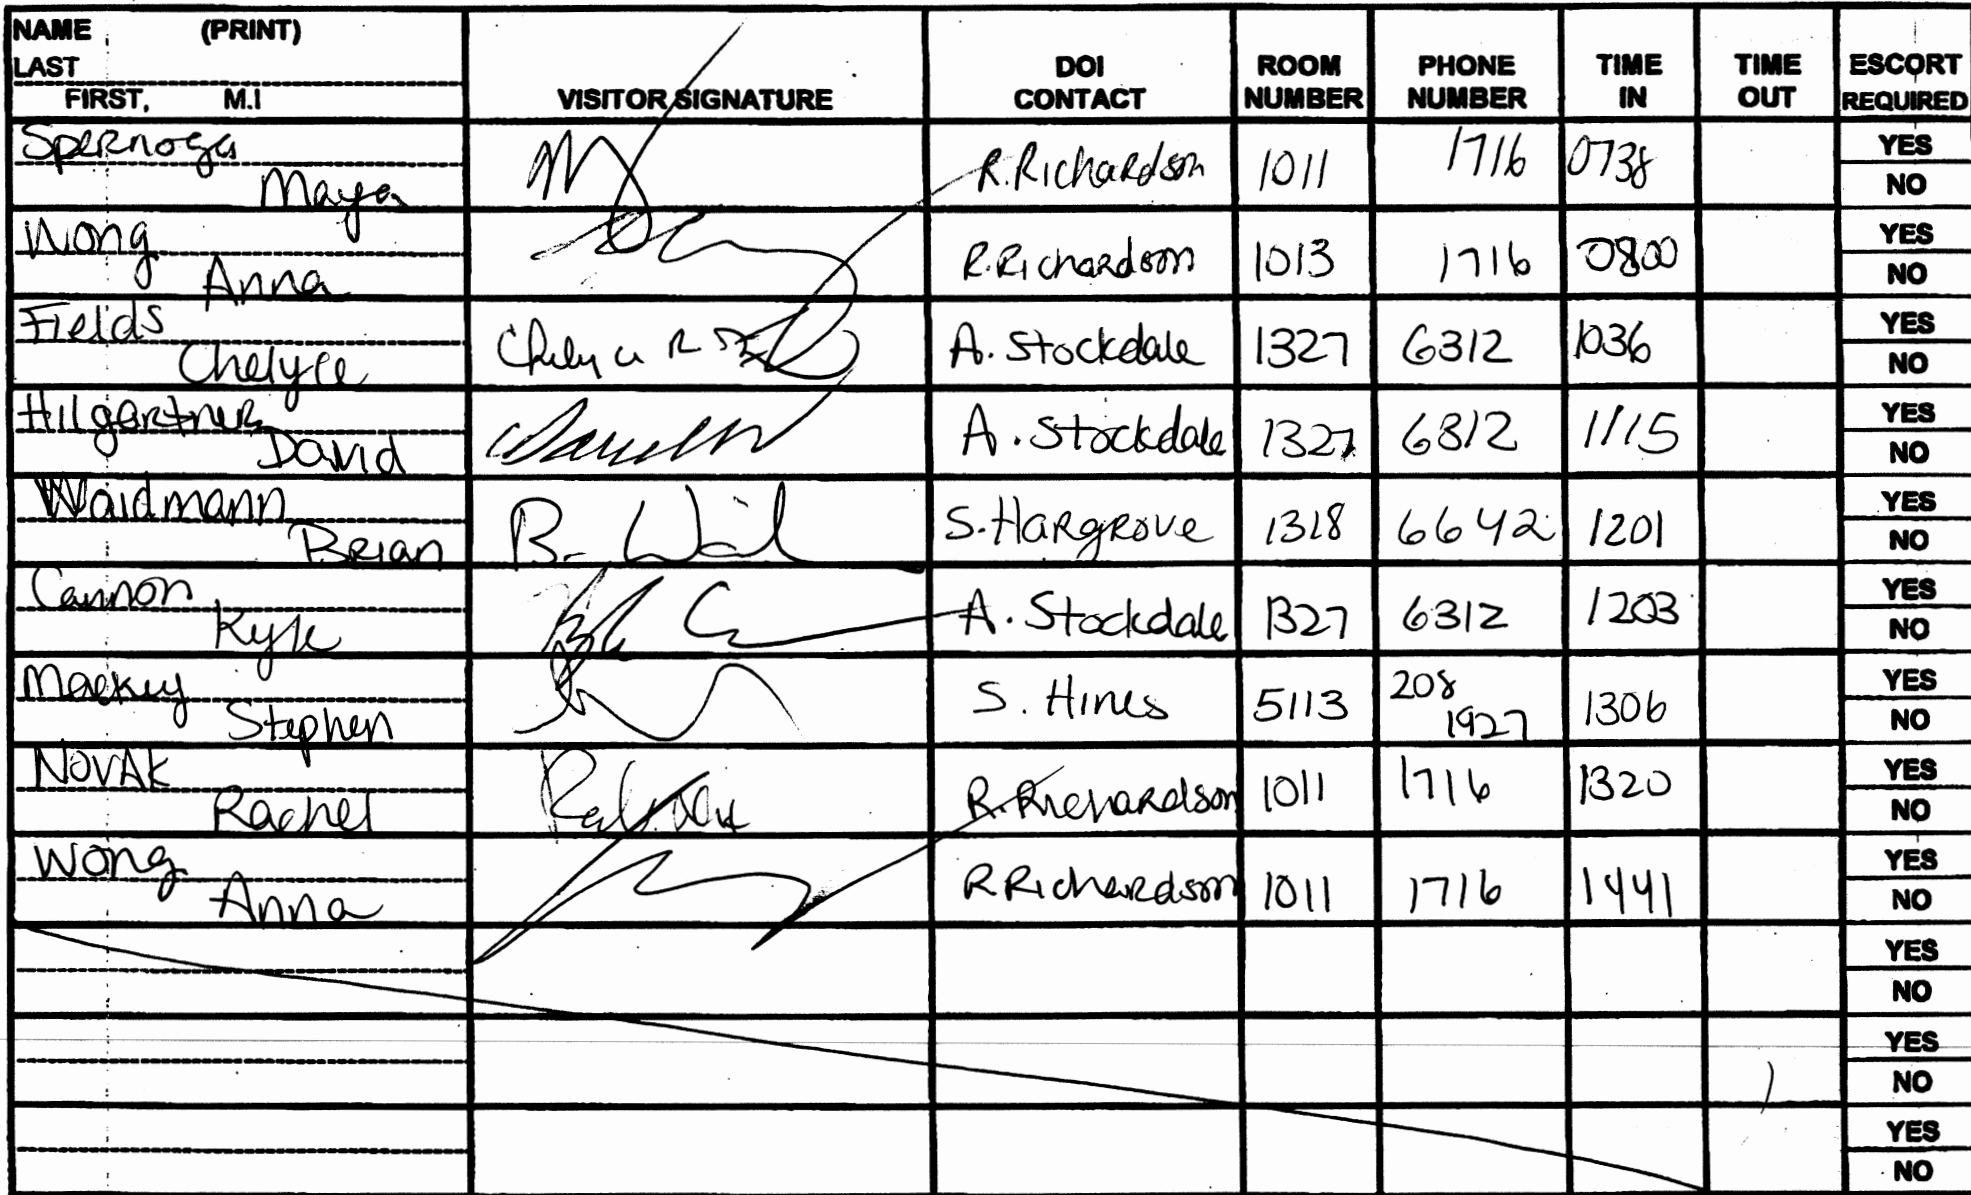 NAME (PRINT)
LAST
FIRST, M.I
VISITOR SIGNATURE
DOI CONTACT
ROOM NUMBER
PHONE NUMBER
TIME IN
TIME OUT
ESCORT REQUIRED
Spernoga Maya R.Richardson 1011 1716 0738 YES NO
Wong Anna R.Richardson 1013 1716 0800 YES NO
Fields Chelyce A. Stockdale 1327 6312 1036 YES NO
Hilgartner David A. Stockdale 1327 6312 1115 YES NO
Waidmann Brian B. S. Hargrove 1318 6642 1201 YES NO
Cannon Kyle A. Stockdale 1327 6312 1203 YES NO
Mackey Stephen S. Hines 5113 208 1927 1306 YES NO
NOVAK Rachel R. Richardson 1011 1716 1320 YES NO
Wong Anna R Richardson 1011 1716 1441 YES NO
YES NO
YES NO
YES NO